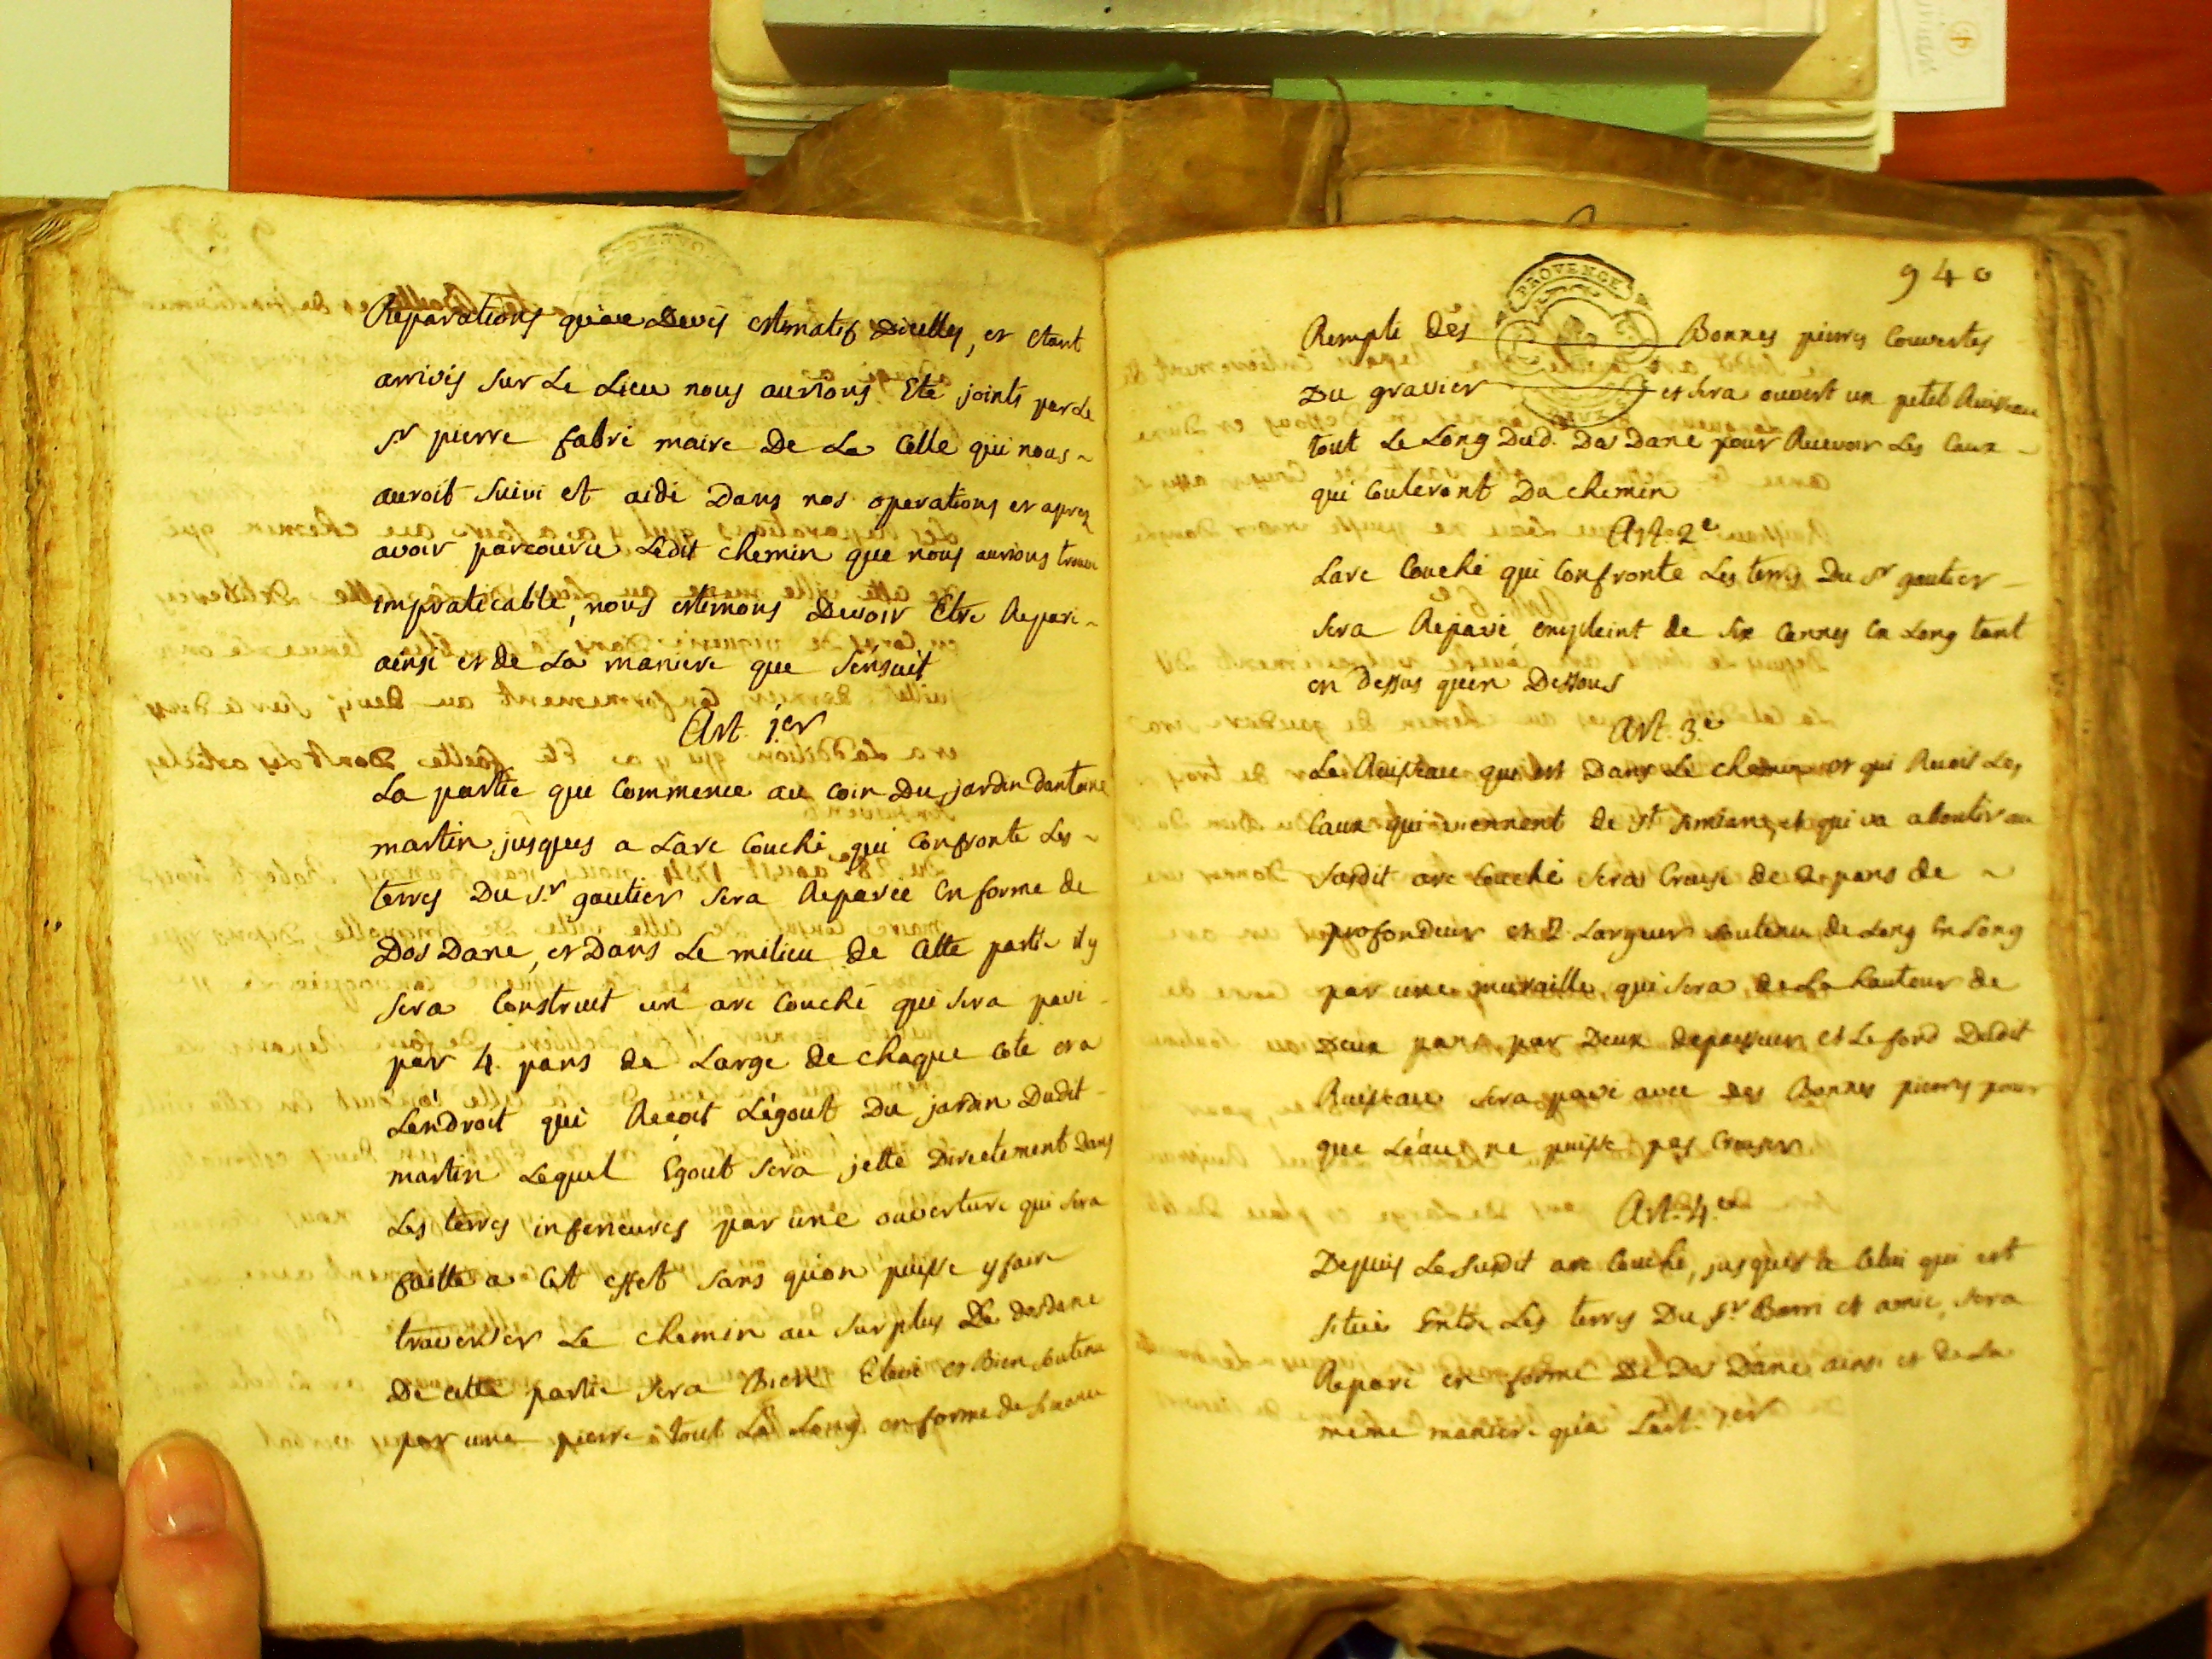 Reparations qu'au Devis estimatif Dicelles, et etant
arrivés sur Le Lieu nous aurions Eté joints par Le
Sr pierre fabre maire De La Celle qui nous
auroit suivi et aidé Dans nos operations et aprez
avoir parcouru Ledit chemin que nous aurions trouvé
impraticable, nous estimons Devoir Etre Reparé
ainsi et de La maniere que S'ensuit
Art. 1er
La partie qui Commence au coin Du jardin dantoine
martin jusques a Larc Couché qui Confronte Les
terres Du Sr gautier sera Reparée En forme de
Dos Dane, et Dans Le milieu de Cette partie il y
sera Construit un arc Couché qui sera pavé
par 4 pans de Large de chaque Coté et a
Lendroit qui Reçoit Légout Du jardin Dudit
martin Lequel Egout sera jetté Directement dans
Les terres inferieures par une ouverture qui sera
faitte a Cet effet sans quion puisse y faire
traverser Le chemin au surplus Le dosdane
De cette partie sera Bien Elevé et Bien soutenu
par une pierre a tout Le Long en forme de
940
PROVENCE
Rempli Dés Bonnes pierres Couvertes
Du gravier et sera ouvert un petit Ruisseau
tout Le Long Dud. Dos Dane pour Recevoir Les Eaux
qui Couleront Du chemin
Art. 2e
Larc Couché qui Confronte Les terres Du Sr gautier
sera Repavé de six Cannes En Long tant
en Dessus qu'en Dessous
Art. 3e
Le Ruisseau qui est Dans Le chemin et qui Reçoit Les
Eaux qui viennent de St et qui va aboutir au
susdit arc Couché sera Creusé de 2 pans de
profondeur et 2 Largeur soutenu de Long En Long
par une muraille qui sera de La hauteur de
Deux pans par Deux depaisseur et Le fond Dudit
Ruisseau sera pavé avec des Bonnes pierres pour
que Léau ne puisse pas Creuser
Art. 4e
Depuis Le susdit arc Couché, jusques a Celui qui est
situé Entre Les terres Du Sr Barri et amic, sera
Reparé en forme De Dos Dane ainsi et de La
meme maniere qu'a Lart. 1er